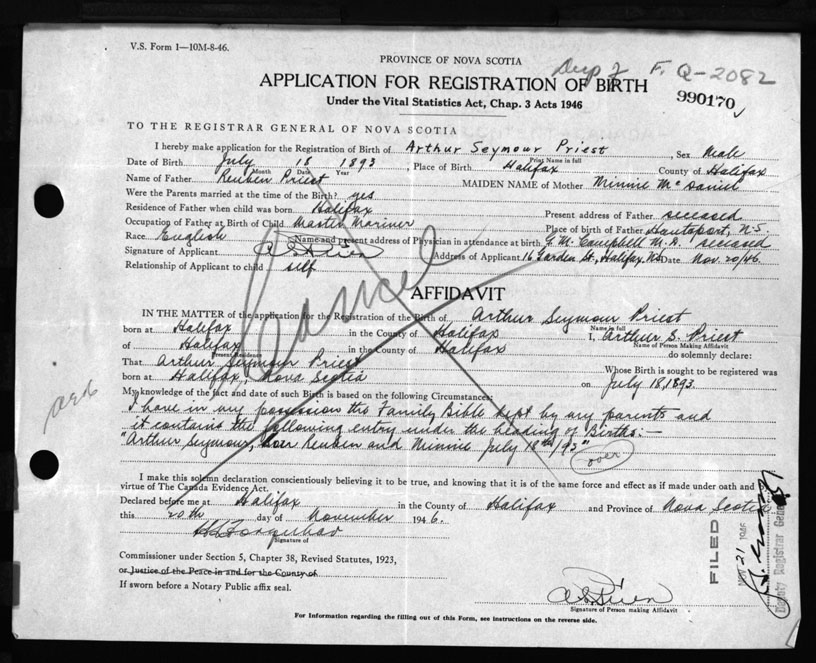 V.S. Form 1—10M-8-46.
PROVINCE OF NOVA SCOTIA
F. Q-2082
APPLICATION FOR REGISTRATION OF BIRTH
990170
Under the Vital Statistics Act, Chap. 3 Acts 1946
TO THE REGISTRAR GENERAL OF NOVA SCOTIA
I hereby make application for the Registration of Birth of Arthur Seymour Priest, Sex Male
Print Name in full
Date of Birth July 18 1893, Place of Birth Halifax County of Halifax
Month Date Year
Name of Father Reuben Priest MAIDEN NAME of Mother Minnie McDaniel
Were the Parents married at the time of the Birth? yes
Residence of Father when child was born Halifax Present address of Father deceased
Occupation of Father at Birth of Child Master Mariner Place of birth of Father Hantsport, N.S.
Race English Name and present address of Physician in attendance at birth G. M. Campbell M.D. deceased
Signature of Applicant Address of Applicant 16 Garden St., Halifax NS Date Nov. 20/46.
Relationship of Applicant to child self
Cancel
AFFIDAVIT
IN THE MATTER of the application for the Registration of the Birth of Arthur Seymour Priest
Name in full
born at Halifax in the County of Halifax I, Arthur S. Priest
Name of Person Making Affidavit
of Halifax in the County of Halifax do solemnly declare:
Present Residence
That Arthur Seymour Priest Whose Birth is sought to be registered was
born at Halifax, Nova Scotia on July 18, 1893.
My knowledge of the fact and date of such Birth is based on the following Circumstances:
I have in my possession the Family Bible kept by my parents and
it contains the following entry under the heading of Births:—
"Arthur Seymour, Reuben and Minnie July 18th/93"
over
I make this solemn declaration conscientiously believing it to be true, and knowing that it is of the same force and effect as if made under oath and by
virtue of The Canada Evidence Act.
Declared before me at Halifax in the County of Halifax and Province of Nova Scotia
this 20th day of November 1946.
Signature of
Commissioner under Section 5, Chapter 38, Revised Statutes, 1923,
or Justice of the Peace in and for the County of
If sworn before a Notary Public affix seal.
Signature of Person making Affidavit
For Information regarding the filling out of this Form, see instructions on the reverse side.
FILED
NOV 21 1946
Deputy Registrar General